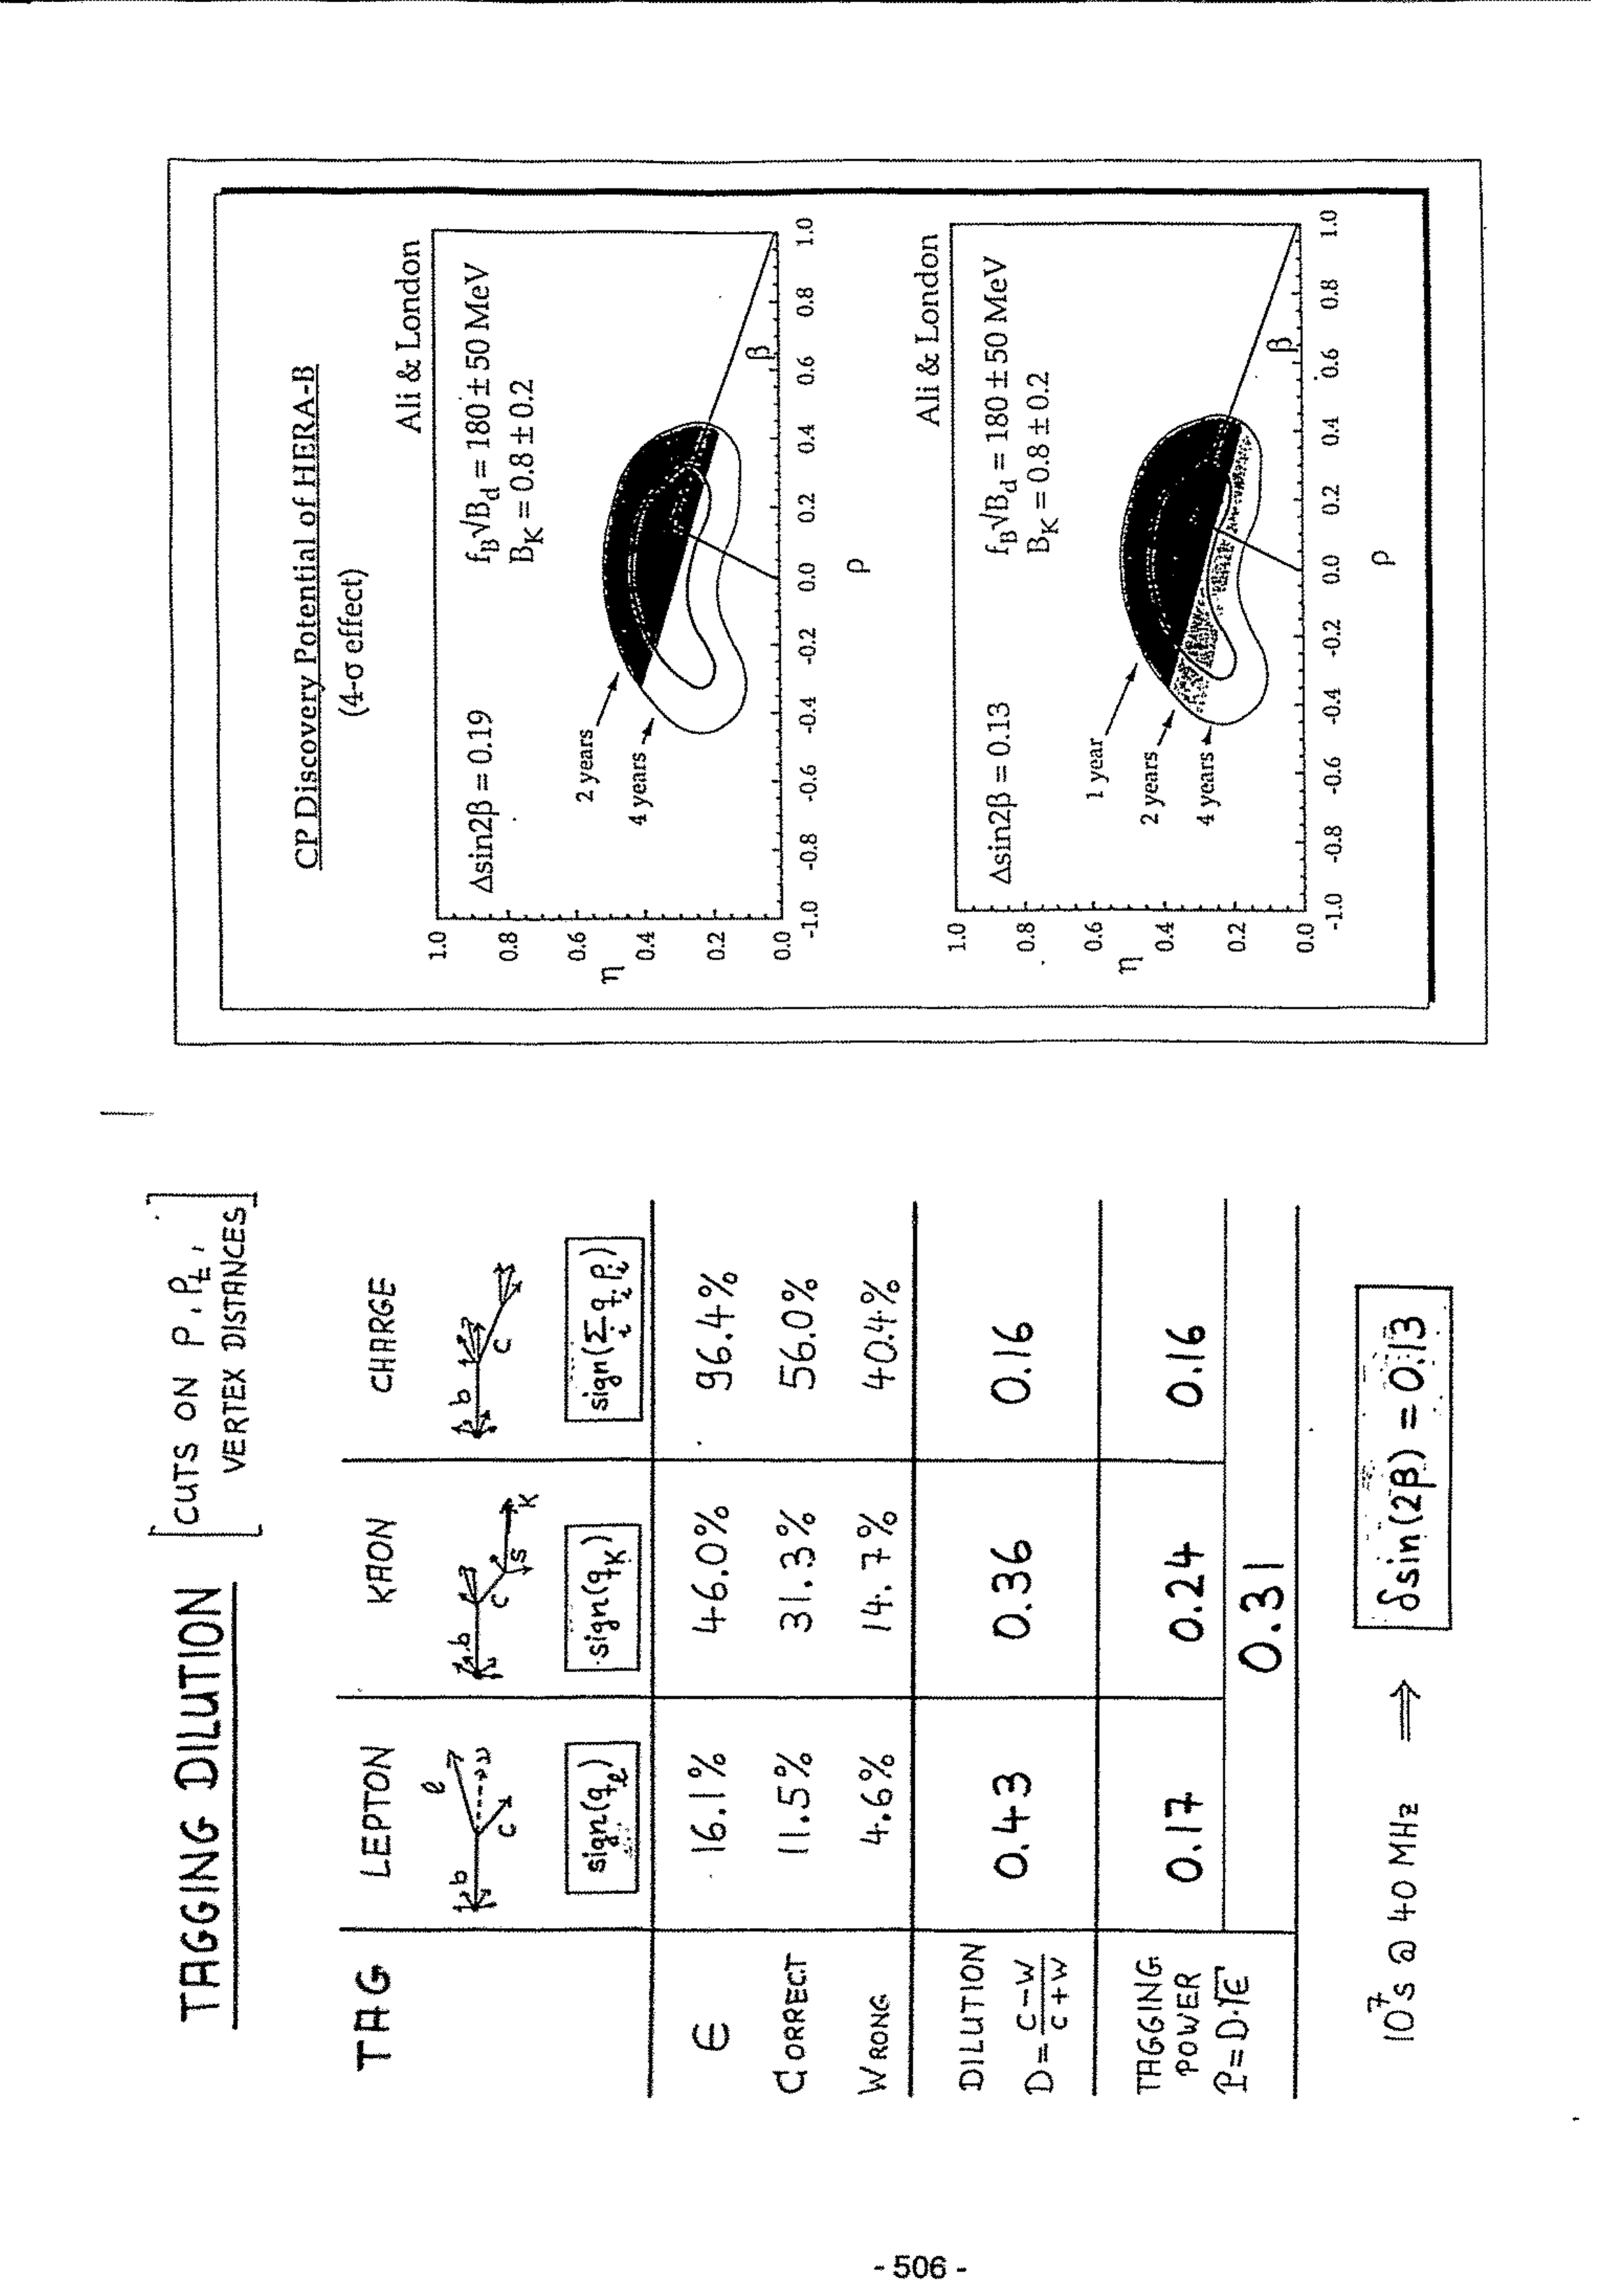 TAGGING DILUTION
[CUTS ON P, Pt,
VERTEX DISTANCES]
TAG LEPTON KAON CHARGE
b l ν c
b c s K
b c
sign(qℓ) sign(qK) sign(Σi qi pi)
ϵ 16.1% 46.0% 96.4%
CORRECT 11.5% 31.3% 56.0%
WRONG 4.6% 14.7% 40.4%
DILUTION
D = (C-W)/(C+W) 0.43 0.36 0.16
TAGGING
POWER
P = D·√ϵ 0.17 0.24 0.16
0.31
10⁷s @ 40 MHz ⟹ δsin(2β) = 0.13
CP Discovery Potential of HERA-B
(4-σ effect)
Ali & London
Δsin2β = 0.19
fB√Bd = 180 ± 50 MeV
BK = 0.8 ± 0.2
2 years
4 years
β
η
1.0
0.8
0.6
0.4
0.2
0.0
-1.0 -0.8 -0.6 -0.4 -0.2 0.0 0.2 0.4 0.6 0.8 1.0
ρ
Ali & London
Δsin2β = 0.13
fB√Bd = 180 ± 50 MeV
BK = 0.8 ± 0.2
1 year
2 years
4 years
β
η
1.0
0.8
0.6
0.4
0.2
0.0
-1.0 -0.8 -0.6 -0.4 -0.2 0.0 0.2 0.4 0.6 0.8 1.0
ρ
- 506 -